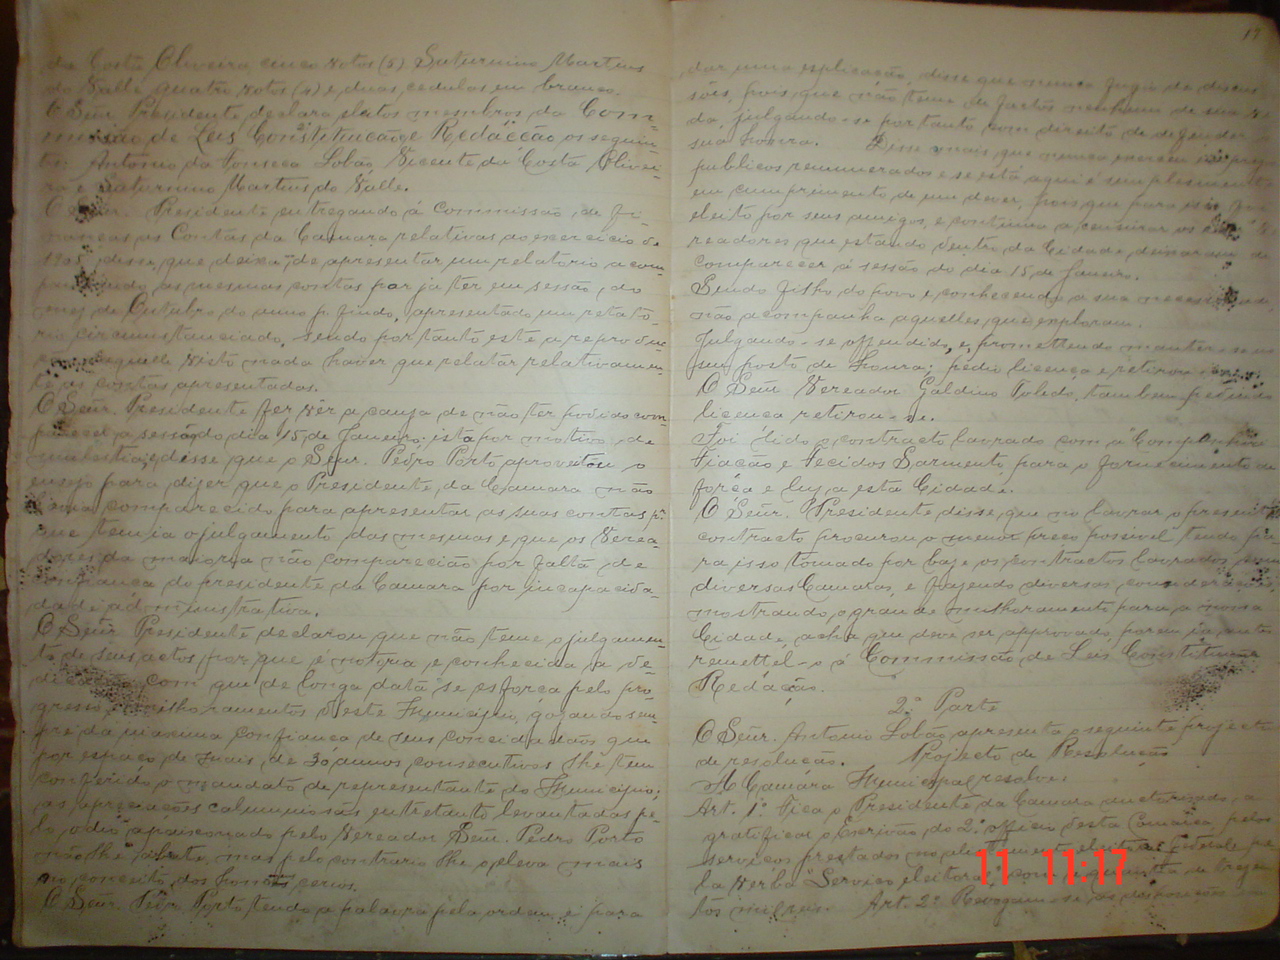 da Costa Oliveira cinco votos (5) Saturnino Martins
do Valle quatro votos (4) e duas cedulas em branco.
O Señr Presidente declara eleitos membros da Com-
missão de Leis Constituição e Redacção os seguin-
tes Antonio da Fonseca Lobão Vicente da Costa Olivei-
ra e Saturnino Martins do Valle.
O Señr. Presidente entregando á commissão de Fi-
nanças as Contas da Camara relativas ao exercicio de
1905, disse, que deixa, de apresentar um relatorio acom-
panhando as mesmas contas por ja ter em sessão, do
mez de Outubro do anno p. findo, apresentado um relato-
rio circumstanciado, sendo portanto este a reprodu-
daquelle visto nada haver que relatar relativamen-
te as contas apresentadas.
O Señr. Presidente fez vêr a causa de não têr podido com-
parecer a sessão do dia 15 de Janeiro, ista por motivo de
molestia, e disse que o Señr. Pedro Porto aproveitou o
ensejo para dizer que o Presidente da Camara não
tinha comparecido para apresentar as suas contas p.
que temia o julgamento das mesmas e que os Verea-
dores da maioria não comparecião por falta de
confiança do presidente da Camara por incapacida-
dade administrativa.
O Señr Presidente declarou que não teme o julgamen-
to de seus actos, por que é notoria e conhecida a de-
dicação com que de longa data se esforça pelo pro-
gresso, e melhoramentos deste Municipio, gozando sem-
pre da maxima confiança de seus concidadãos que
por espaço de mais de 30 annos consecutivos lhe tem
conferido o mandato de representante do Municipio;
as apreciações calumniosas entretanto levantadas pe-
lo odio apaixonado pelo Vereador Señr. Pedro Porto
não lhe abate, mas pelo contrario lhe eleva mais
no conceito dos homens serios.
O Señr. Pedro Porto tendo a palavra pela ordem, é para
17
dar uma explicação, disse que nunca fugio de discus-
sões, pois que não teme de factos nenhum de sua vi-
da, julgando-se portanto com direito de defender a
sua honra. Disse mais, que nunca exerceu empregos
publicos remunerados e se está aqui é simplesmente
em cumprimento de um dever, pois que para isso foi
eleito por seus amigos, e continua a censurar os Ve-
readores que estando dentro da Cidade deixaram de
comparecer á sessão do dia 15 de Janeiro.
Sendo filho do povo e conhecendo a sua necessidade
não acompanha aquelles que exploram.
Julgando-se offendido, e promettendo manter-se no
seu posto de honra; pedio licença e retirou-se.
O Señr Vereador Galdino Toledo, tambem pedindo
licença retirou-se.
Foi lido o contracto lavrado com a Companhia
Fiacão e Tecidos Sarmento, para o fornecimento de
força e luz a esta Cidade.
O Señr. Presidente disse, que no lavrar o presente
contracto procurou o menor preço possivel tendo pa-
ra isso tomado por baze os contractos lavrados em
diversas Camaras, e fazendo diversas considerações
mostrando o grande melhoramento para a nossa
Cidade, acha que deve ser approvado, porem
remettel-o á Commissão de Leis Constituição
Redação.
2ª Parte
O Señr. Antonio Lobão apresenta o seguinte projecto
de resolução. Projecto de Resolução
A Camara Municipal resolve:
Art. 1º Fica o Presidente da Camara auctorisado, a
gratificar o Escrivão do 2º officio desta Comarca pelos
serviços prestados no alistamento eleitoral Federal pe-
la verba "Serviço eleitoral" com a quantia de trezen-
tos mil reis. Art. 2º Revogam-se as disposições em
11 11:17